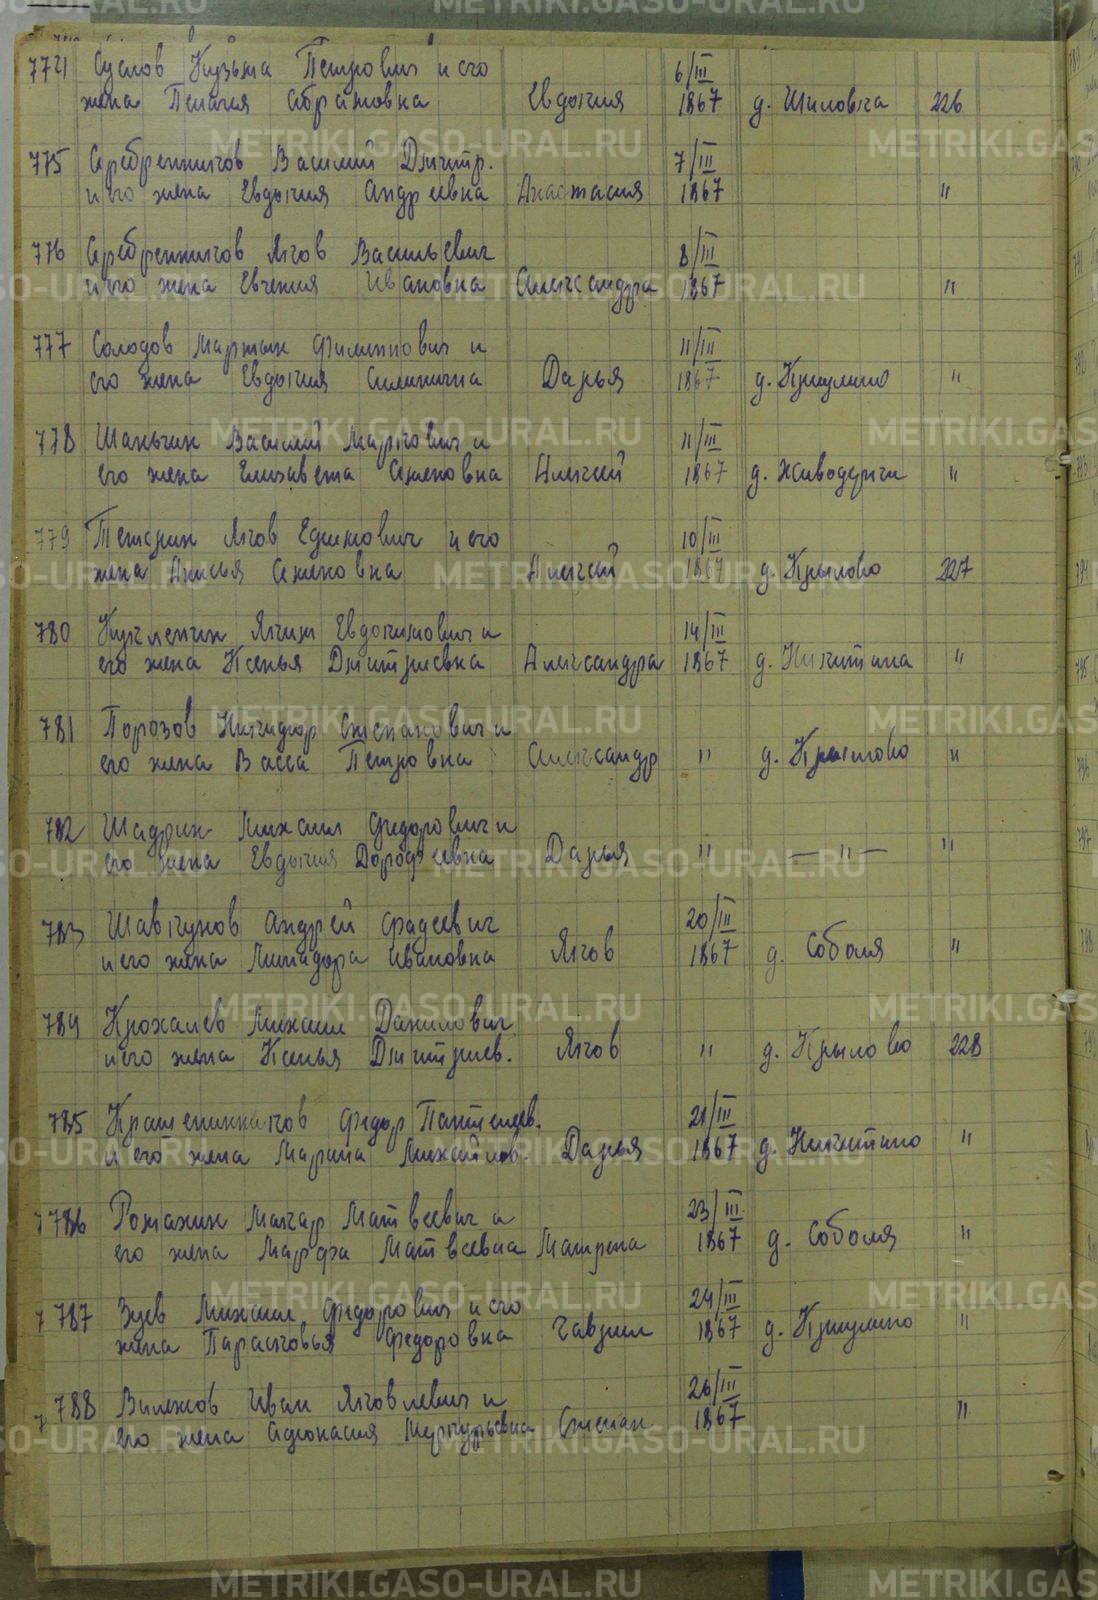 7721 Суслов Кузьма Петрович и его 6/III
жена Пелагия Абрамовна Евдокия 1867 д. Шиловка 226
775 Серебренников Василий Дмитр. 7/III
и его жена Евдокия Андреевна Анастасия 1867 "
776 Серебренников Яков Васильевич 8/III
и его жена Евгения Ивановна Александра 1867 "
777 Солодов Мартын Филиппович и 11/III
его жена Евдокия Дарья 1867 д. Крюлино "
778 Шанькин Василий Маркович и 11/III
его жена Елизавета Семеновна Алексей 1867 д. Живодерки "
779 Яков Ефимович и его 10/III
жена Анисья Семеновна Алексей 1867 д. Крылово 227
780 Яким Евдокимович и 14/III
его жена Ксенья Дмитриевна Александра 1867 д. Никитина "
781 Порозов Никифор Степанович и
его жена Васса Петровна Александр " д. Крылово "
782 Шадрин Михаил Федорович и
его жена Евдокия Дорофеевна Дарья " — " — "
783 Шавкунов Андрей Фадеевич 20/III
и его жена Минадора Ивановна Яков 1867 д. Соболя "
784 Крохалев Михаил Данилович
и его жена Ксенья Дмитриев. Яков " д. Крылово 228
785 Крашенинников Федор Пантелеев. 21/III
и его жена Марина Михайлов. Дарья 1867 д. Никитино "
786 Макар Матвеевич и 23/III
его жена Марфа Матвеевна Матрена 1867 д. Соболя "
787 Зуев Михаил Федорович и его 24/III
жена Парасковья Федоровна Гавриил 1867 д. Крюлино "
788 Вилежов Иван Яковлевич и 26/III
его жена Афонасия Меркурьевна Степан 1867 "
METRIKI.GASO-URAL.RU